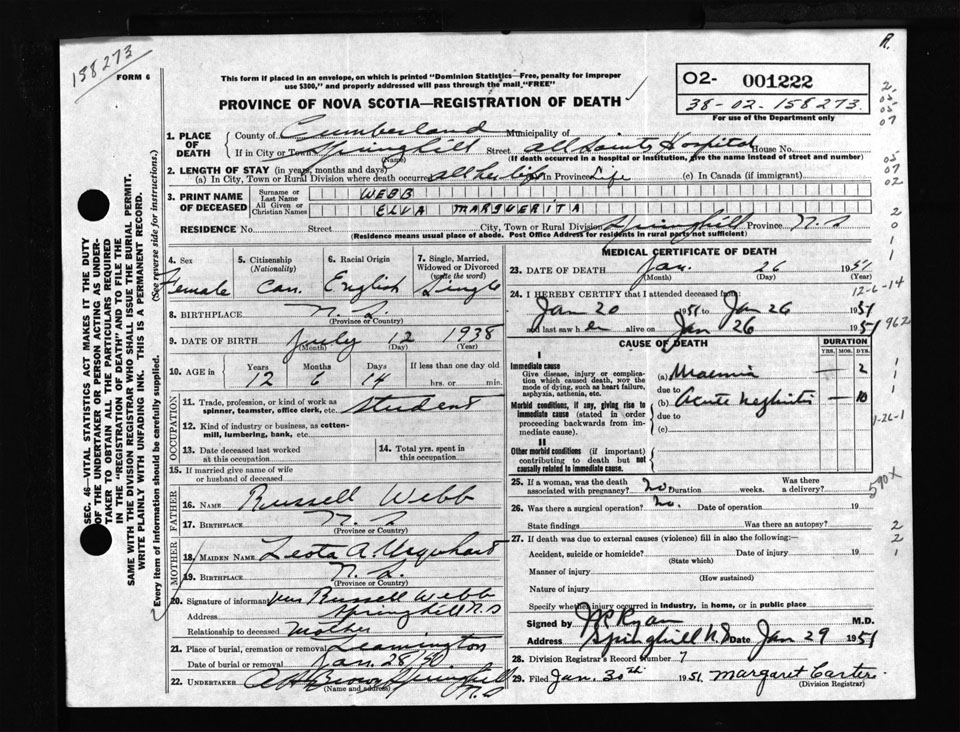 158273
FORM 6
This form if placed in an envelope, on which is printed "Dominion Statistics—Free, penalty for improper
use $300," and properly addressed will pass through the mail "FREE"
PROVINCE OF NOVA SCOTIA—REGISTRATION OF DEATH
R.
O2- 001222
38-02-158273.
For use of the Department only
1. PLACE OF DEATH
County of Cumberland Municipality of
If in City or Town Springhill Street All Saints Hospital House No.
(Name) (If death occurred in a hospital or institution, give the name instead of street and number)
2. LENGTH OF STAY (in years, months and days)
(a) In City, Town or Rural Division where death occurred all her life in Province Life (c) In Canada (if immigrant)
3. PRINT NAME OF DECEASED
Surname or Last Name WEBB
All Given or Christian Names ELVA MARGUERITA
RESIDENCE No. Street City, Town or Rural Division Springhill Province N.S
(Residence means usual place of abode. Post Office Address for residents in rural parts not sufficient)
4. Sex Female
5. Citizenship (Nationality) Can.
6. Racial Origin English
7. Single, Married, Widowed or Divorced (write the word) Single
8. BIRTHPLACE N.S.
(Province or Country)
9. DATE OF BIRTH July 12 1938
(Month) (Day) (Year)
10. AGE in Years 12 Months 6 Days 14 If less than one day old
hrs. or min.
OCCUPATION
11. Trade, profession, or kind of work as spinner, teamster, office clerk, etc. Student
12. Kind of industry or business, as cotton-mill, lumbering, bank, etc.
13. Date deceased last worked at this occupation
14. Total yrs. spent in this occupation
15. If married give name of wife or husband of deceased
FATHER
16. NAME Russell Webb
17. BIRTHPLACE N.S
(Province or Country)
MOTHER
18. MAIDEN NAME Leota A. Urquhart
19. BIRTHPLACE N.S.
(Province or Country)
20. Signature of informant Mrs Russell Webb
Address Springhill N.S
Relationship to deceased Mother
21. Place of burial, cremation or removal Leamington
Date of burial or removal Jan. 28/50
22. UNDERTAKER A H Brown Springhill N.S
(Name and address)
MEDICAL CERTIFICATE OF DEATH
23. DATE OF DEATH Jan. 26 1951
(Month) (Day) (Year)
24. I HEREBY CERTIFY that I attended deceased from:
Jan 20 1951 to Jan 26 1951
and last saw her alive on Jan 26 1951
CAUSE OF DEATH
DURATION
YRS. MOS. DYS.
I
Immediate cause
Give disease, injury or complication which caused death, not the mode of dying, such as heart failure, asphyxia, asthenia, etc.
(a) Uraemia — 2
due to
(b) Acute Nephritis — 10
Morbid conditions, if any, giving rise to immediate cause (stated in order proceeding backwards from immediate cause).
due to
(c)
II
Other morbid conditions (if important) contributing to death but not causally related to immediate cause.
25. If a woman, was the death associated with pregnancy? No Duration weeks. Was there a delivery?
26. Was there a surgical operation? No. Date of operation 19
State findings Was there an autopsy?
27. If death was due to external causes (violence) fill in also the following:—
Accident, suicide or homicide? Date of injury 19
(State which)
Manner of injury
(How sustained)
Nature of injury
Specify whether injury occurred in industry, in home, or in public place
Signed by Ryan M.D.
Address Springhill N.S Date Jan 29 1951
28. Division Registrar's Record Number 7
29. Filed Jan. 30th 1951 Margaret Carter
(Division Registrar)
SEC. 46—VITAL STATISTICS ACT MAKES IT THE DUTY
OF THE UNDERTAKER OR PERSON ACTING AS UNDER-
TAKER TO OBTAIN ALL THE PARTICULARS REQUIRED
IN THE "REGISTRATION OF DEATH" AND TO FILE THE
SAME WITH THE DIVISION REGISTRAR WHO SHALL ISSUE THE BURIAL PERMIT.
WRITE PLAINLY WITH UNFADING INK. THIS IS A PERMANENT RECORD.
Every item of information should be carefully supplied. (See reverse side for instructions.)
2
05
05
07
05
07
02
2
0
1
1
12-6-14
962
1
1
1
1-26-1
590X
2
2
1